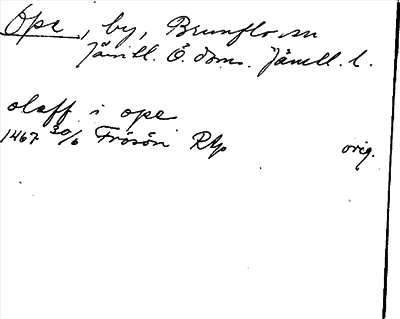 Ope, by, Brunflo sn
Jämtl. Ö. doms. Jämtl. l.
olaff i ope
1467 20/6 Frösön Rtp orig.